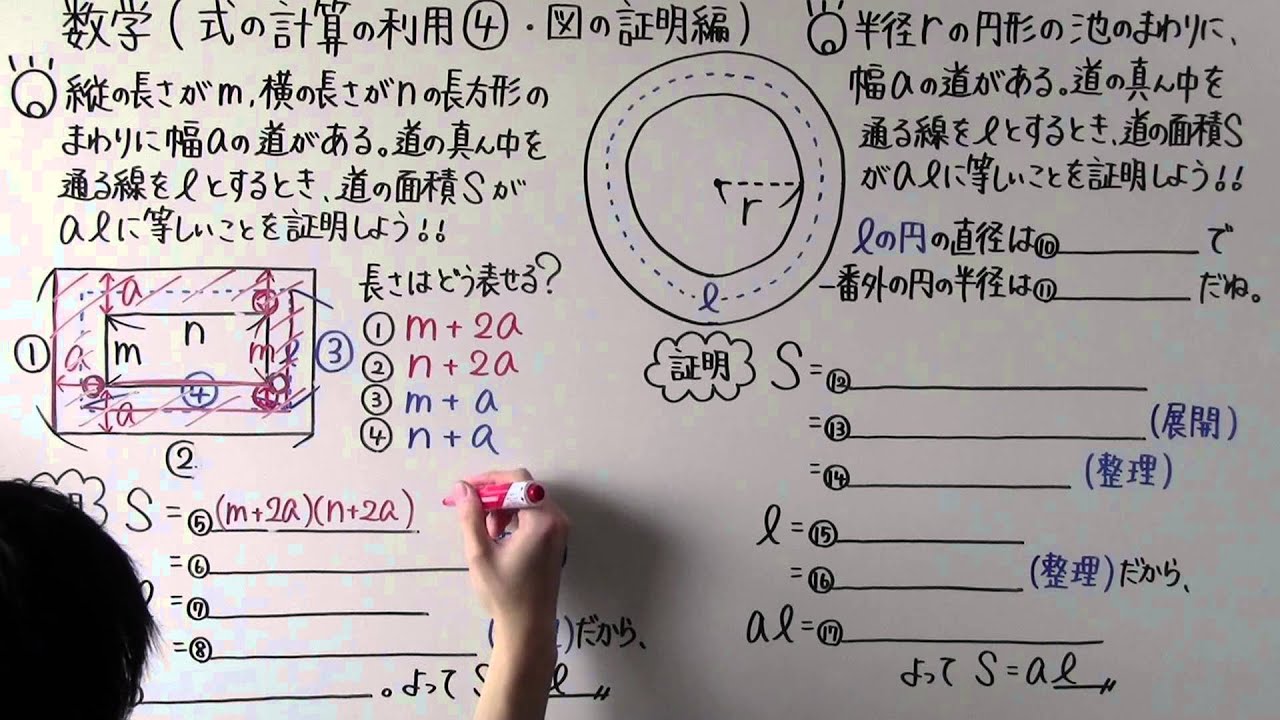 数学(式の計算の利用④・図の証明編)
縦の長さがm,横の長さがnの長方形の
まわりに幅aの道がある。道の真ん中を
通る線をℓとするとき、道の面積Sが
aℓに等しいことを証明しよう!!
a
n
①
a
m
m
ℓ
③
④
a
②
長さはどう表せる?
① m+2a
② n+2a
③ m+a
④ n+a
S=⑤(m+2a)(n+2a)
=⑥
=⑦
=⑧
だから、
。よって S
ℓ
半径rの円形の池のまわりに、
幅aの道がある。道の真ん中を
通る線をℓとするとき、道の面積S
がaℓに等しいことを証明しよう!!
r
ℓ
ℓの円の直径は⑩ で
一番外の円の半径は⑪ だね。
証明
S=⑫
=⑬ (展開)
=⑭ (整理)
ℓ=⑮
=⑯ (整理)だから、
aℓ=⑰
よって S=aℓ